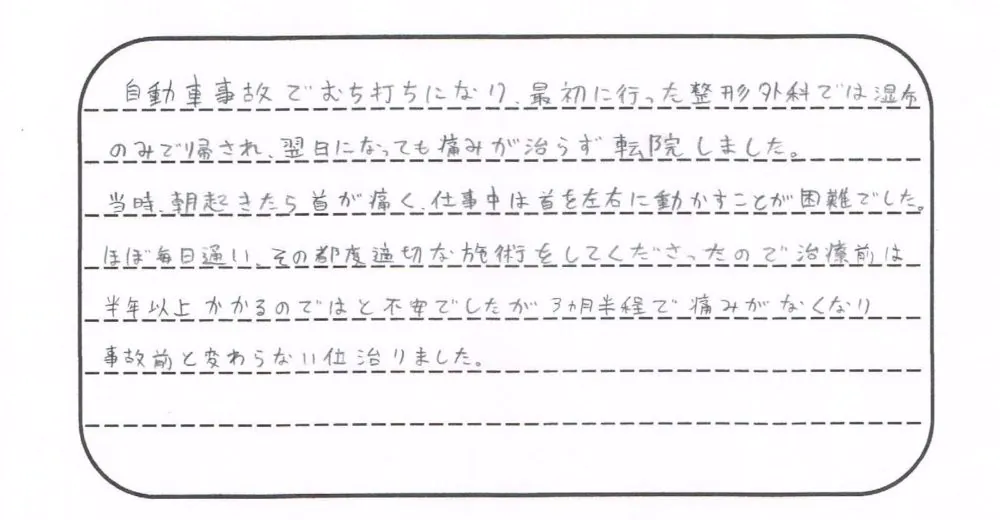 自動車事故でむち打ちになり、最初に行った整形外科では湿布
のみで帰され、翌日になっても痛みが治らず転院しました。
当時、朝起きたら首が痛く、仕事中は首を左右に動かすことが困難でした。
ほぼ毎日通い、その都度適切な施術をしてくださったので治療前は
半年以上かかるのではと不安でしたが3ヵ月半程で痛みがなくなり
事故前と変わらない位治りました。